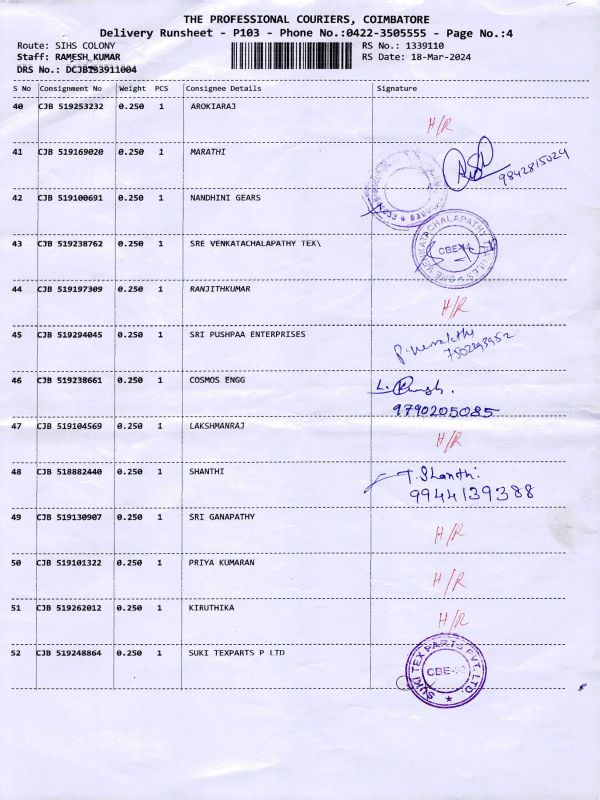 THE PROFESSIONAL COURIERS, COIMBATORE
Delivery Runsheet - P103 - Phone No.:0422-3505555 - Page No.:4
Route: SIHS COLONY RS No.: 1339110
Staff: RAMESH KUMAR RS Date: 18-Mar-2024
DRS No.: DCJBT33911004
S No Consignment No Weight PCS Consignee Details Signature
40 CJB 519253232 0.250 1 AROKIARAJ
H/R
41 CJB 519169020 0.250 1 MARATHI
9842815024
42 CJB 519100691 0.250 1 NANDHINI GEARS
43 CJB 519238762 0.250 1 SRE VENKATACHALAPATHY TEX\
SRE VENKATACHALAPATHY
CBE-14
44 CJB 519197309 0.250 1 RANJITHKUMAR
H/R
45 CJB 519294045 0.250 1 SRI PUSHPAA ENTERPRISES
7502393952
46 CJB 519238661 0.250 1 COSMOS ENGG
9790205085
47 CJB 519104569 0.250 1 LAKSHMANRAJ
H/R
48 CJB 518882440 0.250 1 SHANTHI
T. Shanthi.
9944139388
49 CJB 519130907 0.250 1 SRI GANAPATHY
H/R
50 CJB 519101322 0.250 1 PRIYA KUMARAN
H/R
51 CJB 519262012 0.250 1 KIRUTHIKA
H/R
52 CJB 519248864 0.250 1 SUKI TEXPARTS P LTD
SUKI TEX PARTS PVT. LTD.